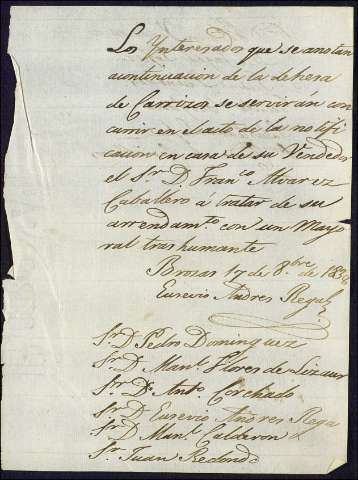 Los Ynteresados que se anotan
acontinuacion de la dehesa
de Carrizos se servirán con
currir en el acto de la notifi
cacion en casa de su Vendedor
el Sr D. Franco Alvarez
Caballero a tratar de su
arrendamto con un Mayo
ral trashumante
Brozas 17 de 8bre de
Eusevio Andres Regal
Sr D. Pedro Dominguez
Sr D. Manl Flores de Lizaur
Sr Dn Anto Corchado
Sr D Eusevio Andres Rega
Sr D Manl Calderon
Sr Juan Redondo